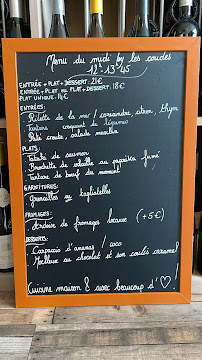 Menu du midi by les coudes
12 13 45
ENTRÉE + PLAT + DESSERT : 21€
ENTRÉE + PLAT OU PLAT + DESSERT : 18€
PLAT UNIQUE : 14€
ENTRÉES:
Rillette de la mer / coriandre, citron, thym
Tartare croquant de légumes
Pâté croute, salade mesclun
PLATS:
Tataki de saumon
Brochette de volaille au paprika fumé
Tartare de bœuf du moment
GARNITURES:
Grenailles ou tagliatelles
FROMAGES:
Ardoise de fromages locaux (+5€)
DESSERTS:
Carpaccio d'ananas / coco
Moelleux au chocolat et son coulis caramel
Cuisine maison & avec beaucoup d'♡!